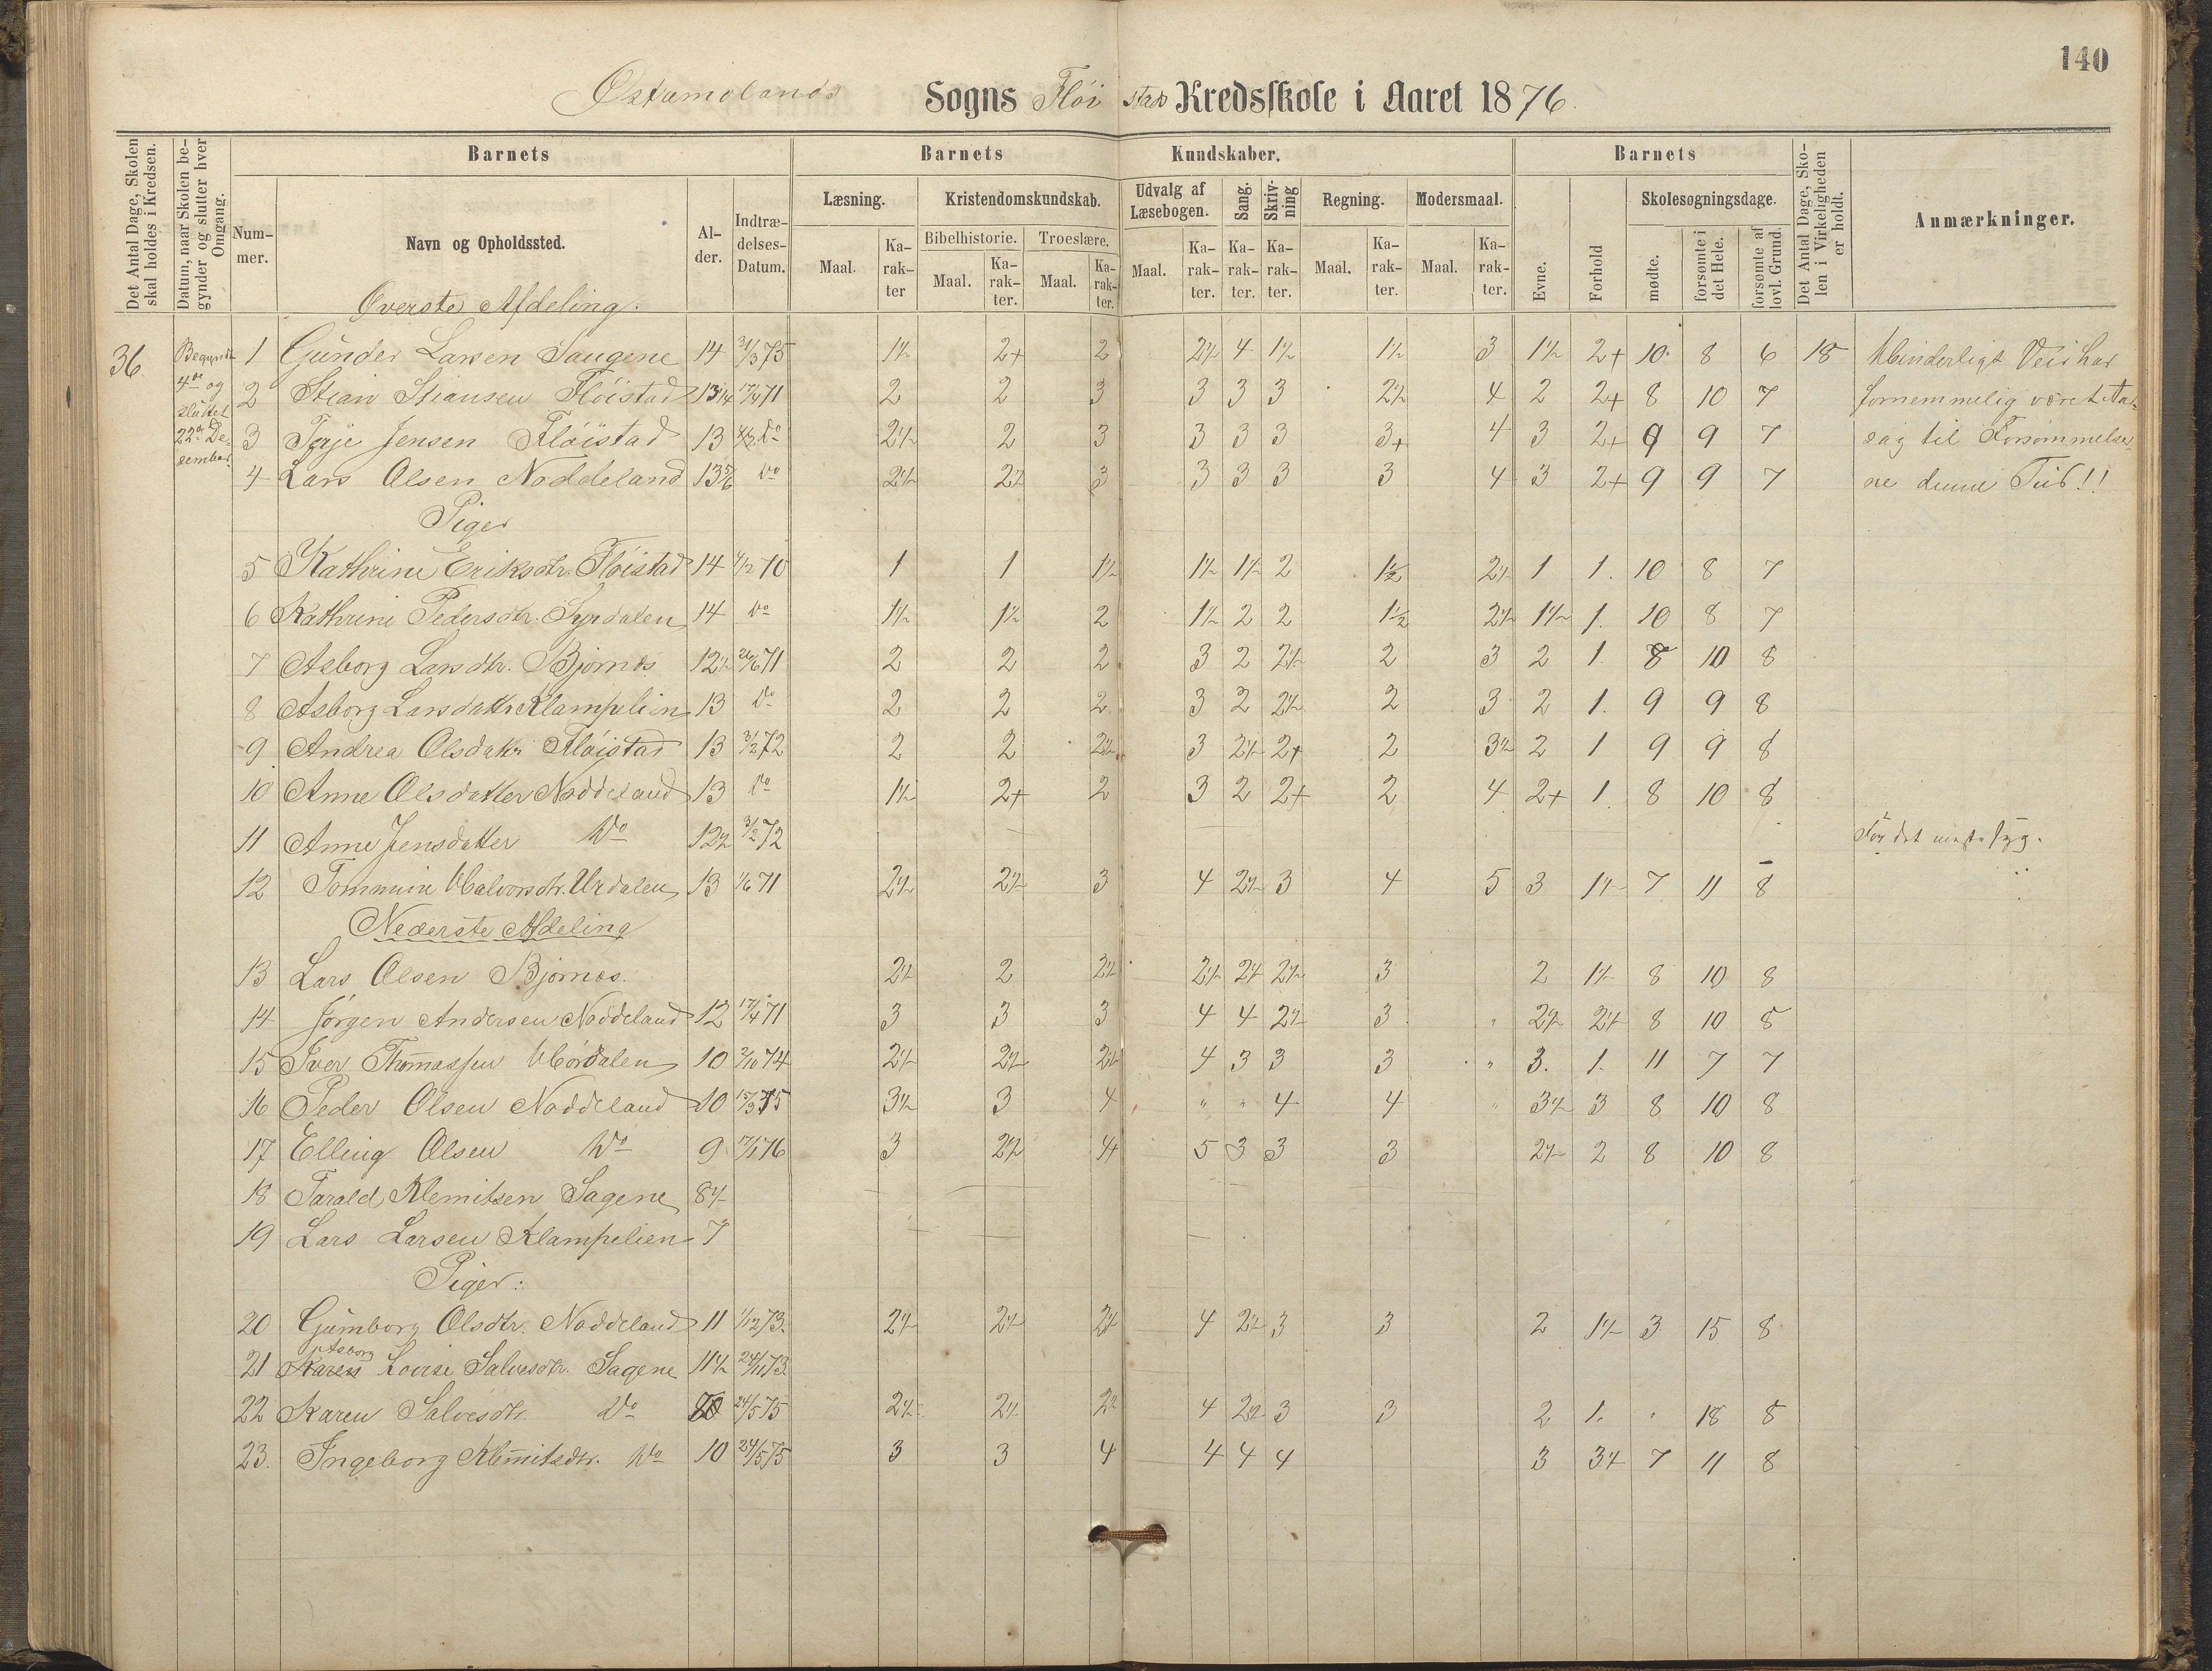 140
Østamolands Sogns Flöistad Kredsskole i Aaret 1876.
Det Antal Dage, Skolen skal holdes i Kredsen.
Datum, naar Skolen begynder og slutter hver Omgang.
Barnets
Barnets Kundskaber.
Barnets
Det Antal Dage, Skolen i Virkeligheden er holdt.
Anmærkninger.
Nummer.
Navn og Opholdssted.
Alder.
Indtrædelses-Datum.
Læsning.
Kristendomskundskab.
Udvalg af Læsebogen.
Sang.
Skrivning
Regning.
Modersmaal.
Evne.
Forhold
Skolesøgningsdage.
Bibelhistorie. Troeslære.
mødte.
forsømte i det Hele.
forsømte af lovl. Grund.
Maal. Karakter Maal. Karakter. Maal. Karakter. Maal. Karakter. Karakter. Karakter. Maal. Karakter. Maal. Karakter.
Øverste Afdeling.
36 Begyndt 4de og sluttet 22de December.
1 Gunder Larsen Saugene 14 31/3 75 1½ 2+ 2 2½ 4 1½ 1½ 3 1½ 2+ 10 8 6 18 Hinderligt Veir har
2 Stian Stiansen Flöistad 13¼ 17/4 71 2 2 3 3 3 3 2½ 4 2 2+ 8 10 7 fornemmelig været Aar-
3 Terje Jensen Flöistad 13 Do 2½ 2 3 3 3 3 3+ 4 3 2+ 9 9 7 sag til Forsømmelser-
4 Lars Olsen Noddeland 13 5/6 Do 2½ 2½ 3 3 3 3 3 4 3 2+ 9 9 7 ne denne Tid!!
Piger
5 Kathrine Eriksdtr. Flöistad 14 1/2 70 1 1 1½ 1½ 1½ 2 1½ 2½ 1 1. 10 8 7
6 Kathrine Pedersdtr. Syrdalen 14 Do 1½ 1½ 2 1½ 2 2 1½ 2½ 1½ 1. 10 8 7
7 Asborg Larsdtr. Bjørnos 12½ 26/6 71 2 2 2 3 2 2½ 2 3 2 1. 8 10 8
8 Asborg Larsdattr Klampelien 13 Do 2 2 2 3 2 2½ 2 3 2 1. 9 9 8
9 Andrea Olsdattr Flöistad 13 3/2 72 2 2 2½ 3 2½ 2+ 2 3½ 2 1 9 9 8
10 Anne Olsdatter Noddeland 13 Do 1½ 2+ 2 3 2 2+ 2 4 2+ 1. 8 10 8
11 Anne Jensdatter Do 12½ 3/2 72 For det meste syg.
12 Tommine Halvorsdtr. Urdalen 13 1/6 71 2½ 2½ 3 4 2½ 3 4 5 3 1½ 7 11 8
Nederste Afdeling
13 Lars Olsen Bjørnos. 2½ 2 2½ 2½ 2½ 2½ 3 2 1½ 8 10 8
14 Jørgen Andersen Noddeland 12 17/4 71 3 3 3 4 4 2½ 3 " 2½ 2½ 8 10 8
15 Iver Thomassen Hördalen 10 2/10 74 2½ 2½ 2½ 4 3 3 3 " 3. 1. 11 7 7
16 Peder Olsen Noddeland 10 15/3 75 3½ 3 4 " " 4 4 " 3½ 3 8 10 8
17 Elling Olsen Do 9 17/1 76 3 2½ 4 5 3 3 3 2½ 2 8 10 8
18 Tarald Klemitsen Sagene 8½
19 Lars Larsen Klampelien 7
Piger:
20 Gumborg Olsdtr. Noddeland 11 1/12 73. 2½ 2½ 2½ 4 2½ 3 3 2 1½ 3 15 8
Asborg
21 Karen Lovise Salvesdtr. Sagene 11½ 24/11 73.
22 Karen Salvesdtr. Do 24/5 75 2½ 2½ 2½ 4 2½ 3 3 2 1. " 18 8
23. Ingeborg Klemitsdtr. Do 10 24/5 75 3 3 4 4 4 4 3 3½ 7 11 8